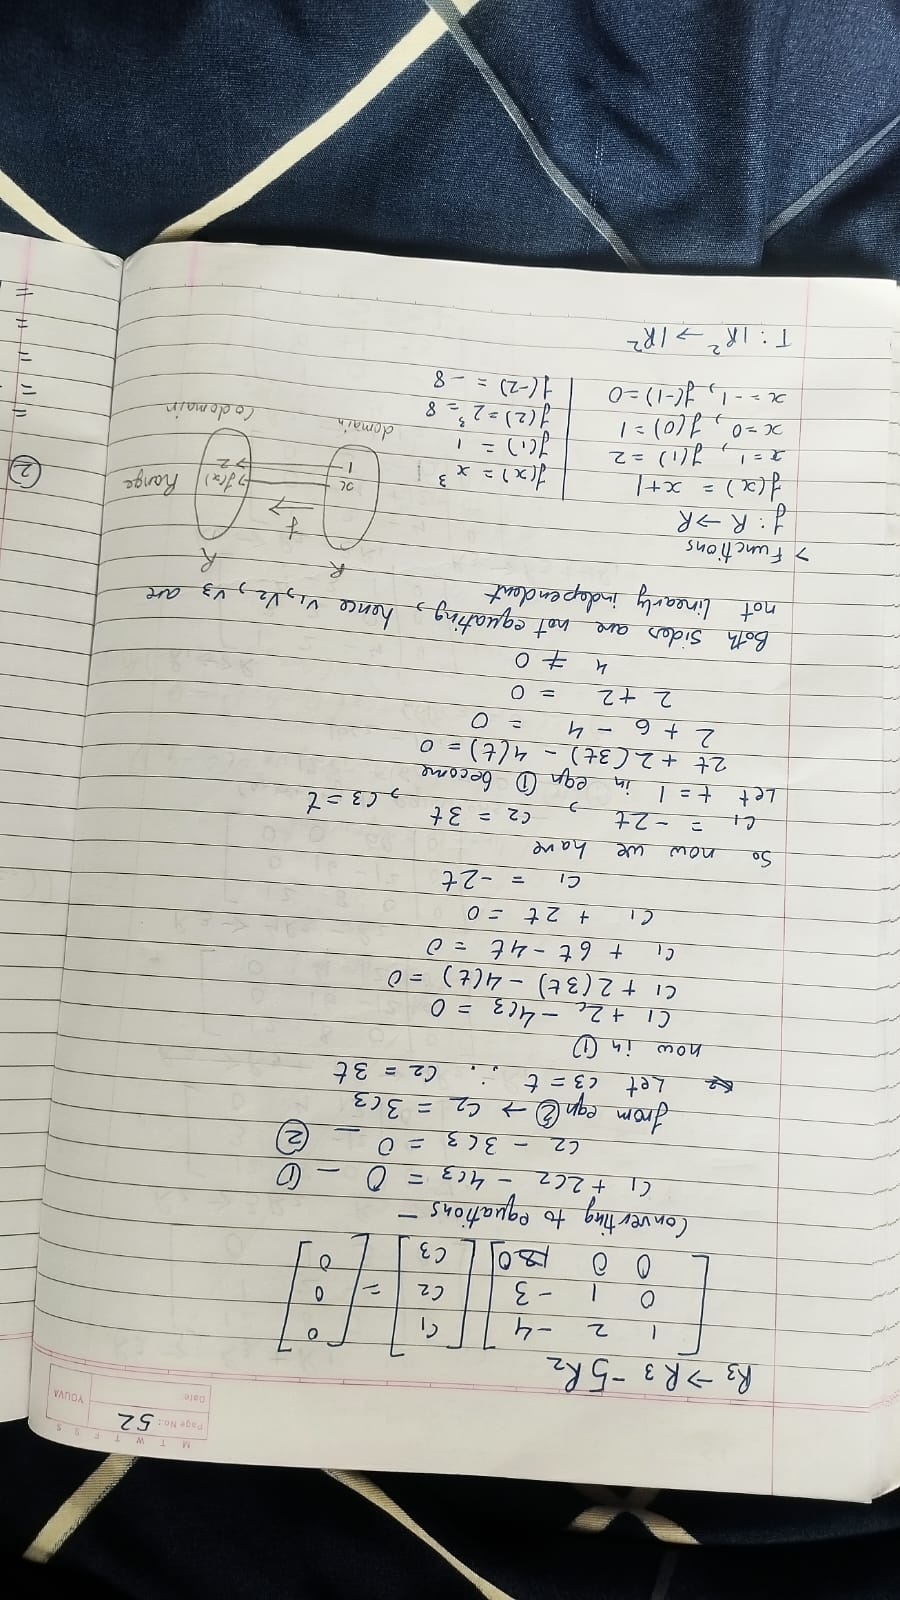 M T W T F S S
Page No.: 52
Date:
YOUVA
R3 → R3 - 5R2
[ 1 2 -4 ] [ c1 ] = [ 0 ]
[ 0 1 -3 ] [ c2 ] [ 0 ]
[ 0 0 0 ] [ c3 ] [ 0 ]
Converting to equations -
c1 + 2c2 - 4c3 = 0 - ①
c2 - 3c3 = 0 - ②
from eqn ② → c2 = 3c3
Let c3 = t ∴ c2 = 3t
now in ①
c1 + 2c - 4c3 = 0
c1 + 2(3t) - 4(t) = 0
c1 + 6t - 4t = 0
c1 + 2t = 0
c1 = -2t
So now we have
c1 = -2t , c2 = 3t , c3 = t
Let t = 1 in eqn ① become
2t + 2(3t) - 4(t) = 0
2 + 6 - 4 = 0
2 + 2 = 0
4 ≠ 0
Both sides are not equating, hence v1, v2, v3 are
not linearly independent
> Functions
f : R → R
f(x) = x+1
x=1, f(1) = 2
x=0, f(0) = 1
x=-1, f(-1)=0
f(x) = x³
f(1) = 1
f(2) = 2³ = 8
f(-2) = -8
R f R
x → f(x) Range
1 → 2
domain
codomain
T : IR² → IR²
②
=
=
=
=
=